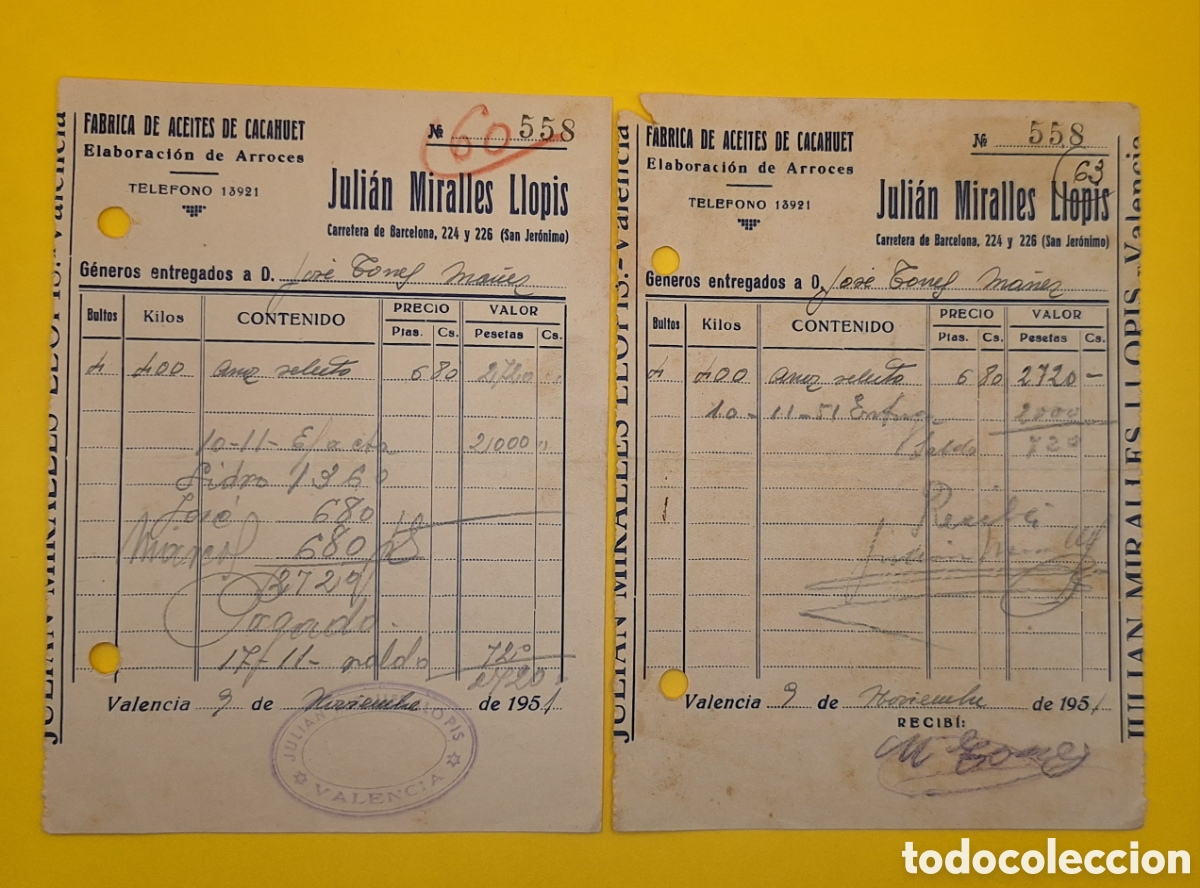 FABRICA DE ACEITES DE CACAHUET
Elaboración de Arroces
TELEFONO 13921
№ 558
60
Julián Miralles Llopis
Carretera de Barcelona, 224 y 226 (San Jerónimo)
Géneros entregados a D. José Torres Máñez
Bultos Kilos CONTENIDO PRECIO VALOR
Ptas. Cs. Pesetas Cs.
4 400 arroz selecto 6 80 2720
10-11- 2000
Isidro 1360
José 680
680
2720
Pagado
17-11- saldo 720
2720
Valencia 9 de Noviembre de 1951
JULIAN MIRALLES LLOPIS
VALENCIA
JULIAN MIRALLES LLOPIS.-Valencia
FABRICA DE ACEITES DE CACAHUET
Elaboración de Arroces
TELEFONO 13921
№ 558
63
Julián Miralles Llopis
Carretera de Barcelona, 224 y 226 (San Jerónimo)
Géneros entregados a D. José Torres Máñez
Bultos Kilos CONTENIDO PRECIO VALOR
Ptas. Cs. Pesetas Cs.
4 400 arroz selecto 6 80 2720 -
10-11-51 Entrega 2000
Saldo 720
Recibí
Valencia 9 de Noviembre de 1951
RECIBÍ:
M Torres
JULIAN MIRALLES LLOPIS.-Valencia
JULIAN MIRALLES LLOPIS.-Valencia
todocoleccion